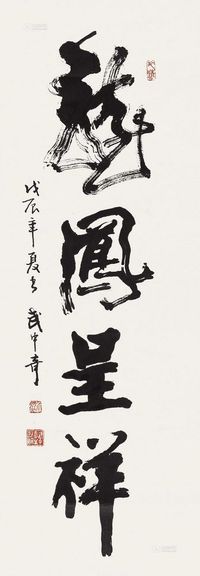 龍鳳呈祥
戊辰年夏月
武中奇